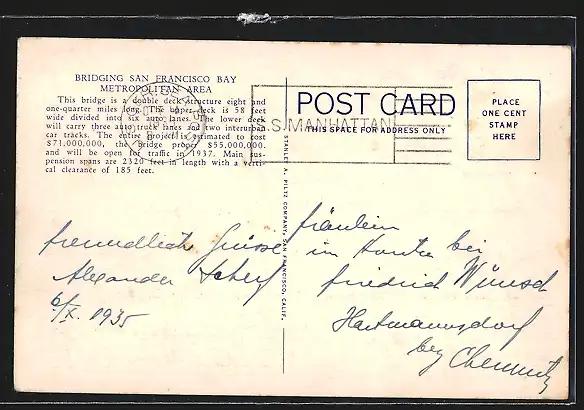 BRIDGING SAN FRANCISCO BAY
METROPOLITAN AREA
This bridge is a double deck structure eight and
one-quarter miles long. The upper deck is 58 feet
wide divided into six auto lanes. The lower deck
will carry three auto truck lanes and two interurban
car tracks. The entire project is estimated to cost
$71,000,000, the bridge proper $55,000,000.
and will be open for traffic in 1937. Main sus-
pension spans are 2320 feet in length with a verti-
cal clearance of 185 feet.
freundliche Grüsse
Alexander
6/X. 1935
STANLEY A. PILTZ COMPANY, SAN FRANCISCO, CALIF.
POST CARD
THIS SPACE FOR ADDRESS ONLY
S.S. MANHATTAN
PLACE
ONE CENT
STAMP
HERE
fräulein
im bei
friedrich Wünsch
Hartmannsdorf
bey Chemnitz